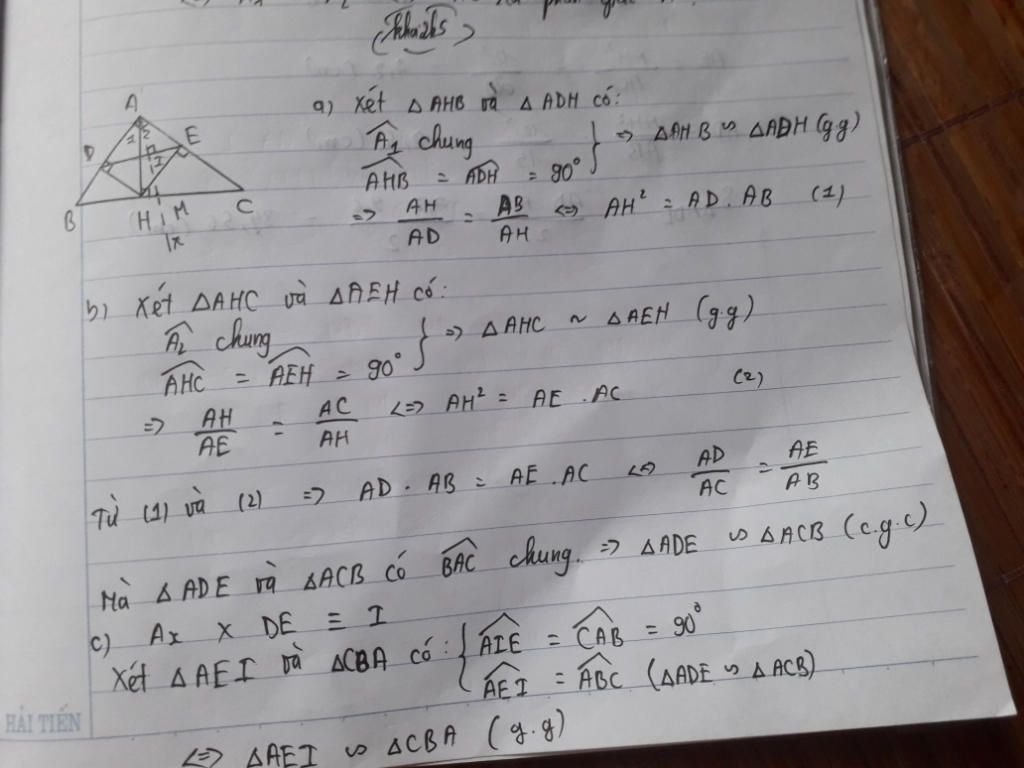 (khazks)
a) Xét △AHB và △ADH có:
Â₁ chung
AHB = ADH = 90° } ⇒ △AHB ∽ △ADH (g.g)
⇒ AH/AD = AB/AH ⇔ AH² = AD. AB (1)
A
D
E
B
H
M
C
x
b) Xét △AHC và △AEH có:
Â₂ chung
AHC = AEH = 90° } ⇒ △AHC ~ △AEH (g.g)
⇒ AH/AE = AC/AH ⇔ AH² = AE . AC (2)
Từ (1) và (2) ⇒ AD . AB = AE . AC ⇔ AD/AC = AE/AB
Mà △ADE và △ACB có BAC chung. ⇒ △ADE ∽ △ACB (c.g.c)
c) Ax X DE ≡ I
Xét △AEI và △CBA có: { AIE = CAB = 90°
AEI = ABC (△ADE ∽ △ACB)
⇔ △AEI ∽ △CBA (g.g)
HẢI TIẾN